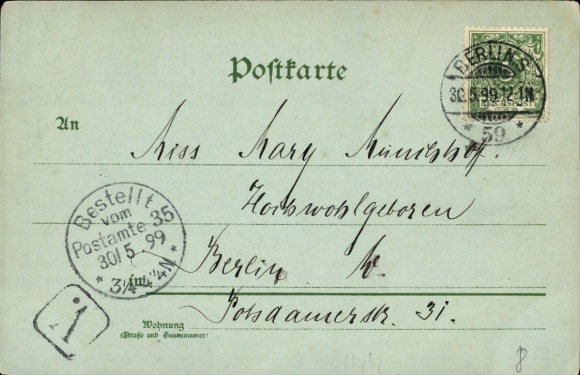 Postkarte
BERLIN S.
30.5.99.12-1N
* 59 *
REICHSPOST
An
Miss Mary
Hochwohlgeboren
Bestellt
vom
Postamte 35
30/5.99
* 3¼-4¼N *
in
Berlin W.
Potsdamerstr. 31.
Wohnung
(Straße und Hausnummer)
1
8